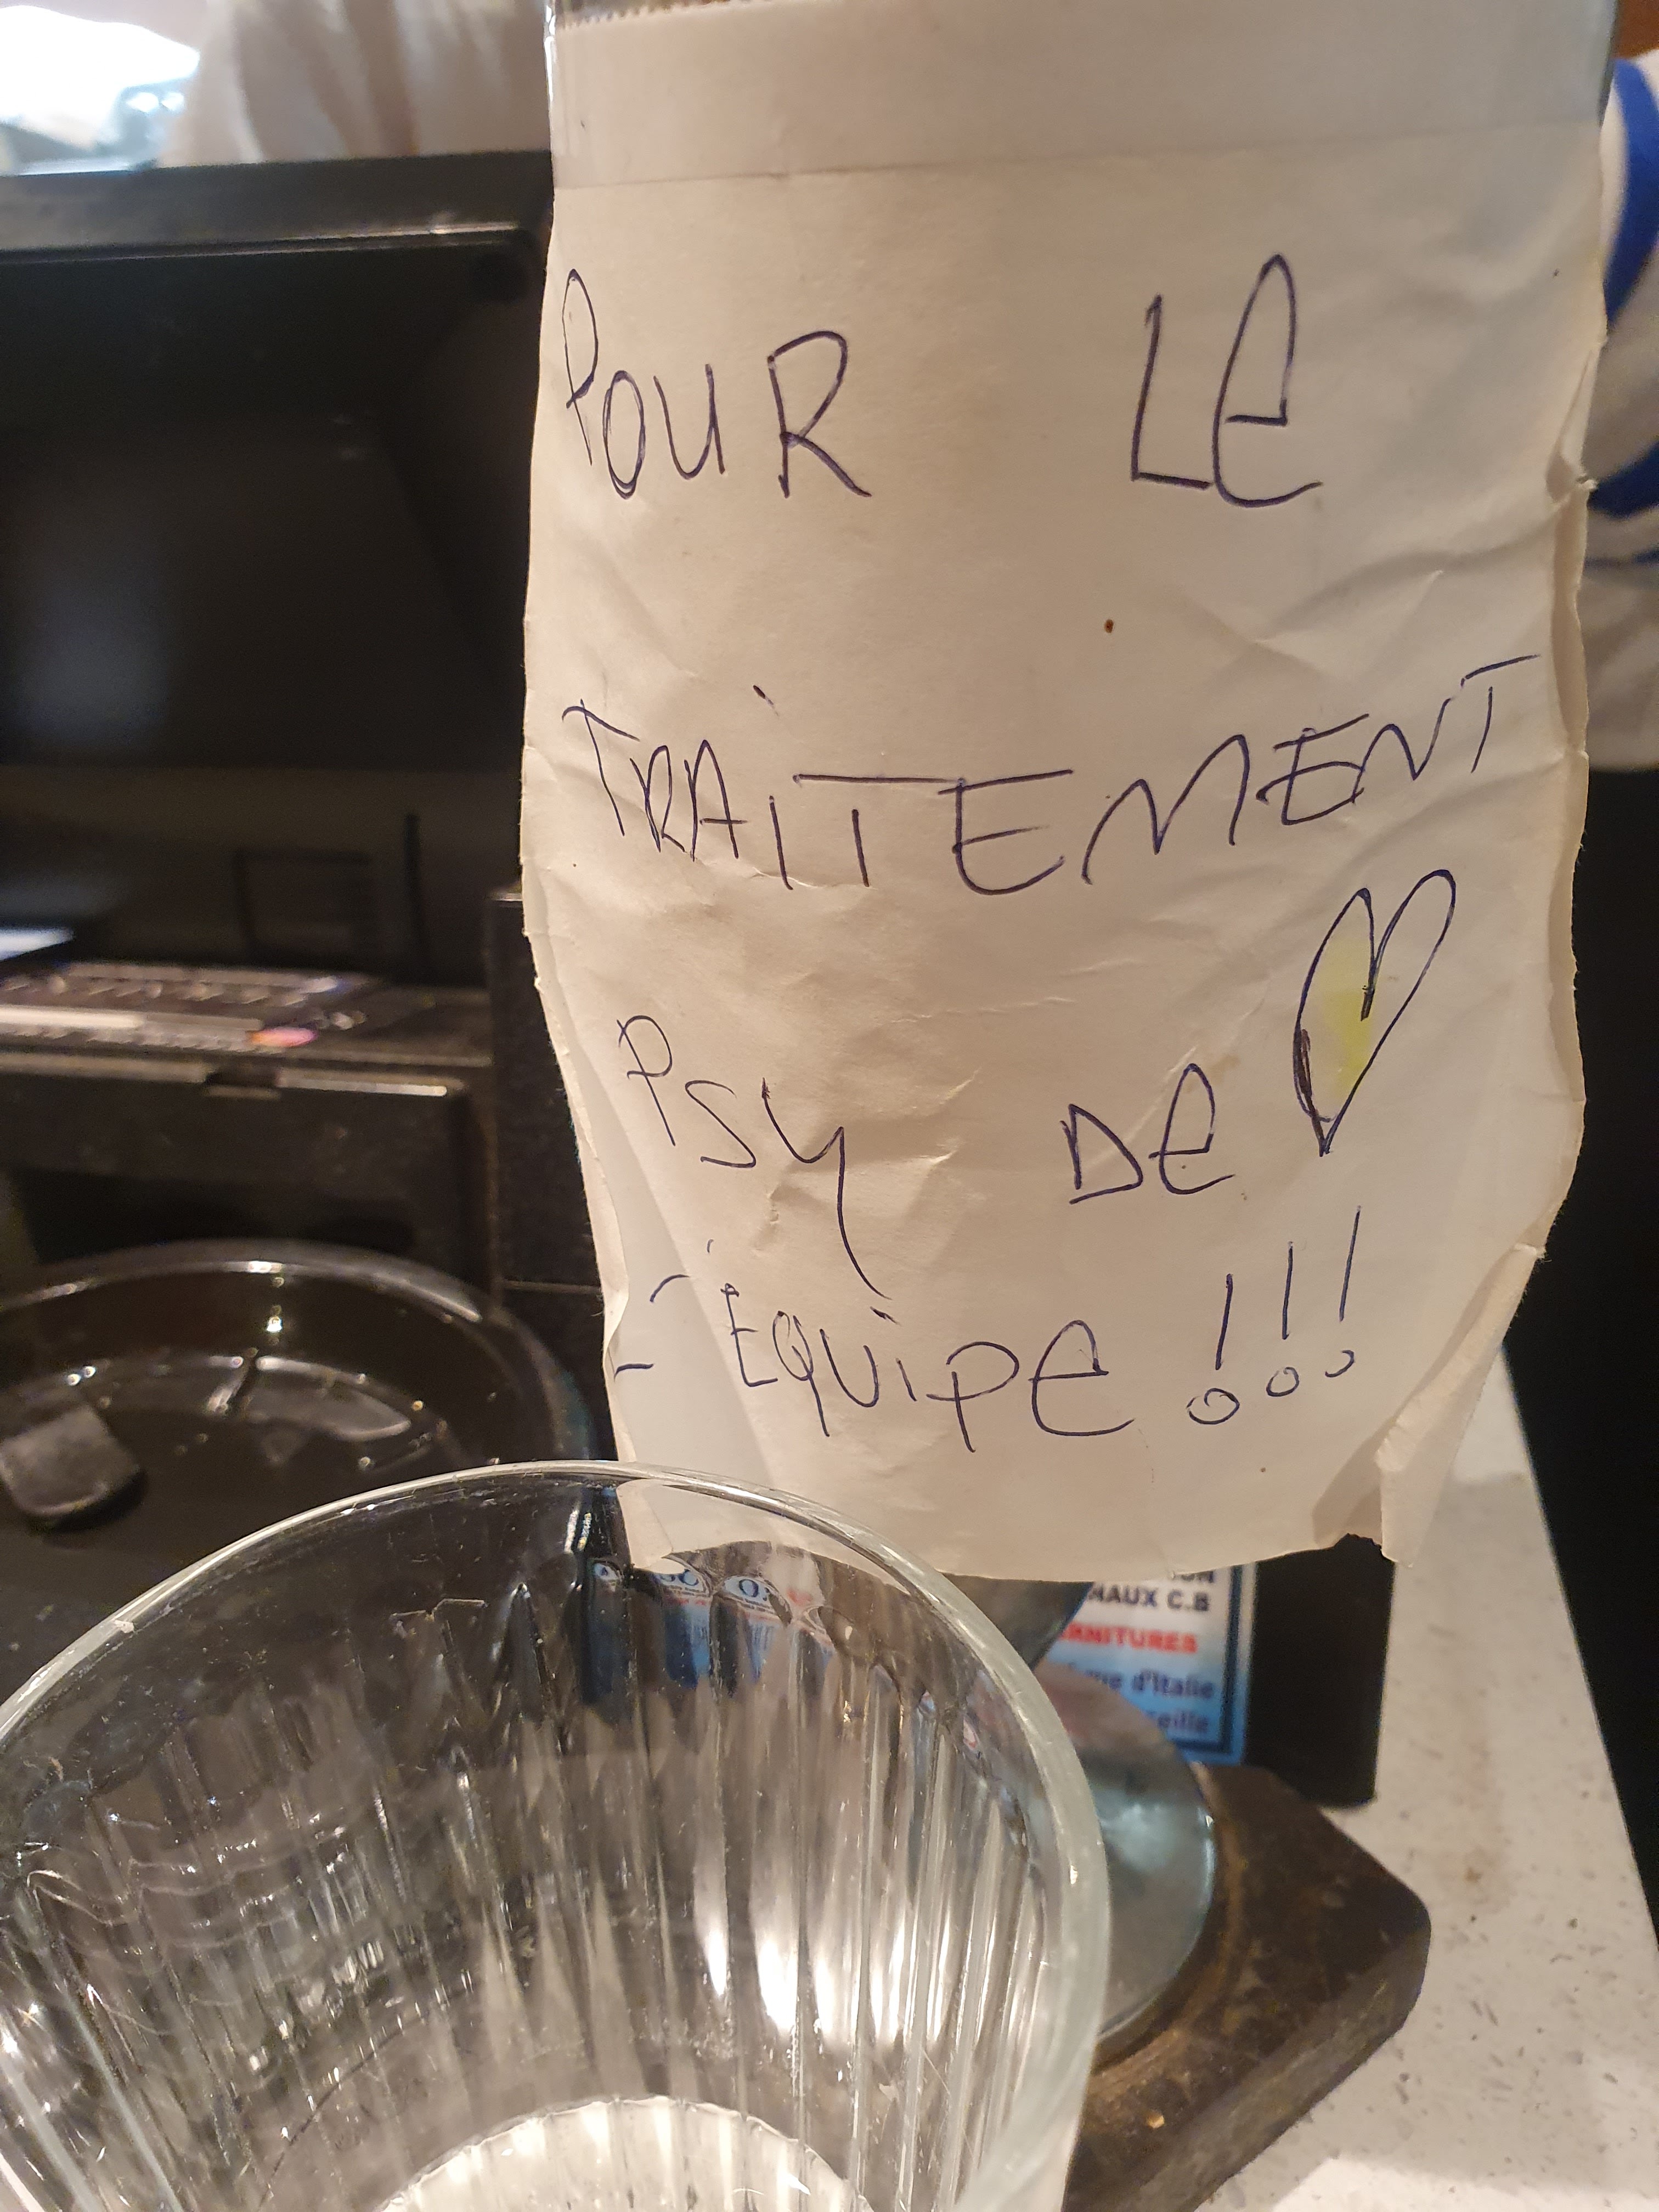 POUR LE
TRAiTEMENT
PSY DE
L'ÉQUiPE !!!
MAUX C.B
RNITURES
d'Italie